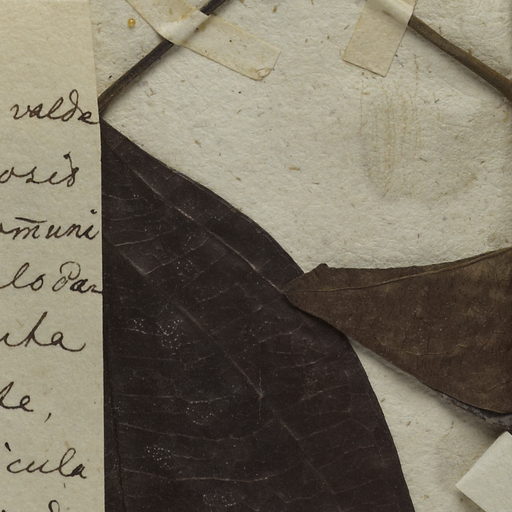 valde
osis
om̃uni
lo Pa-
uta
te,
icula